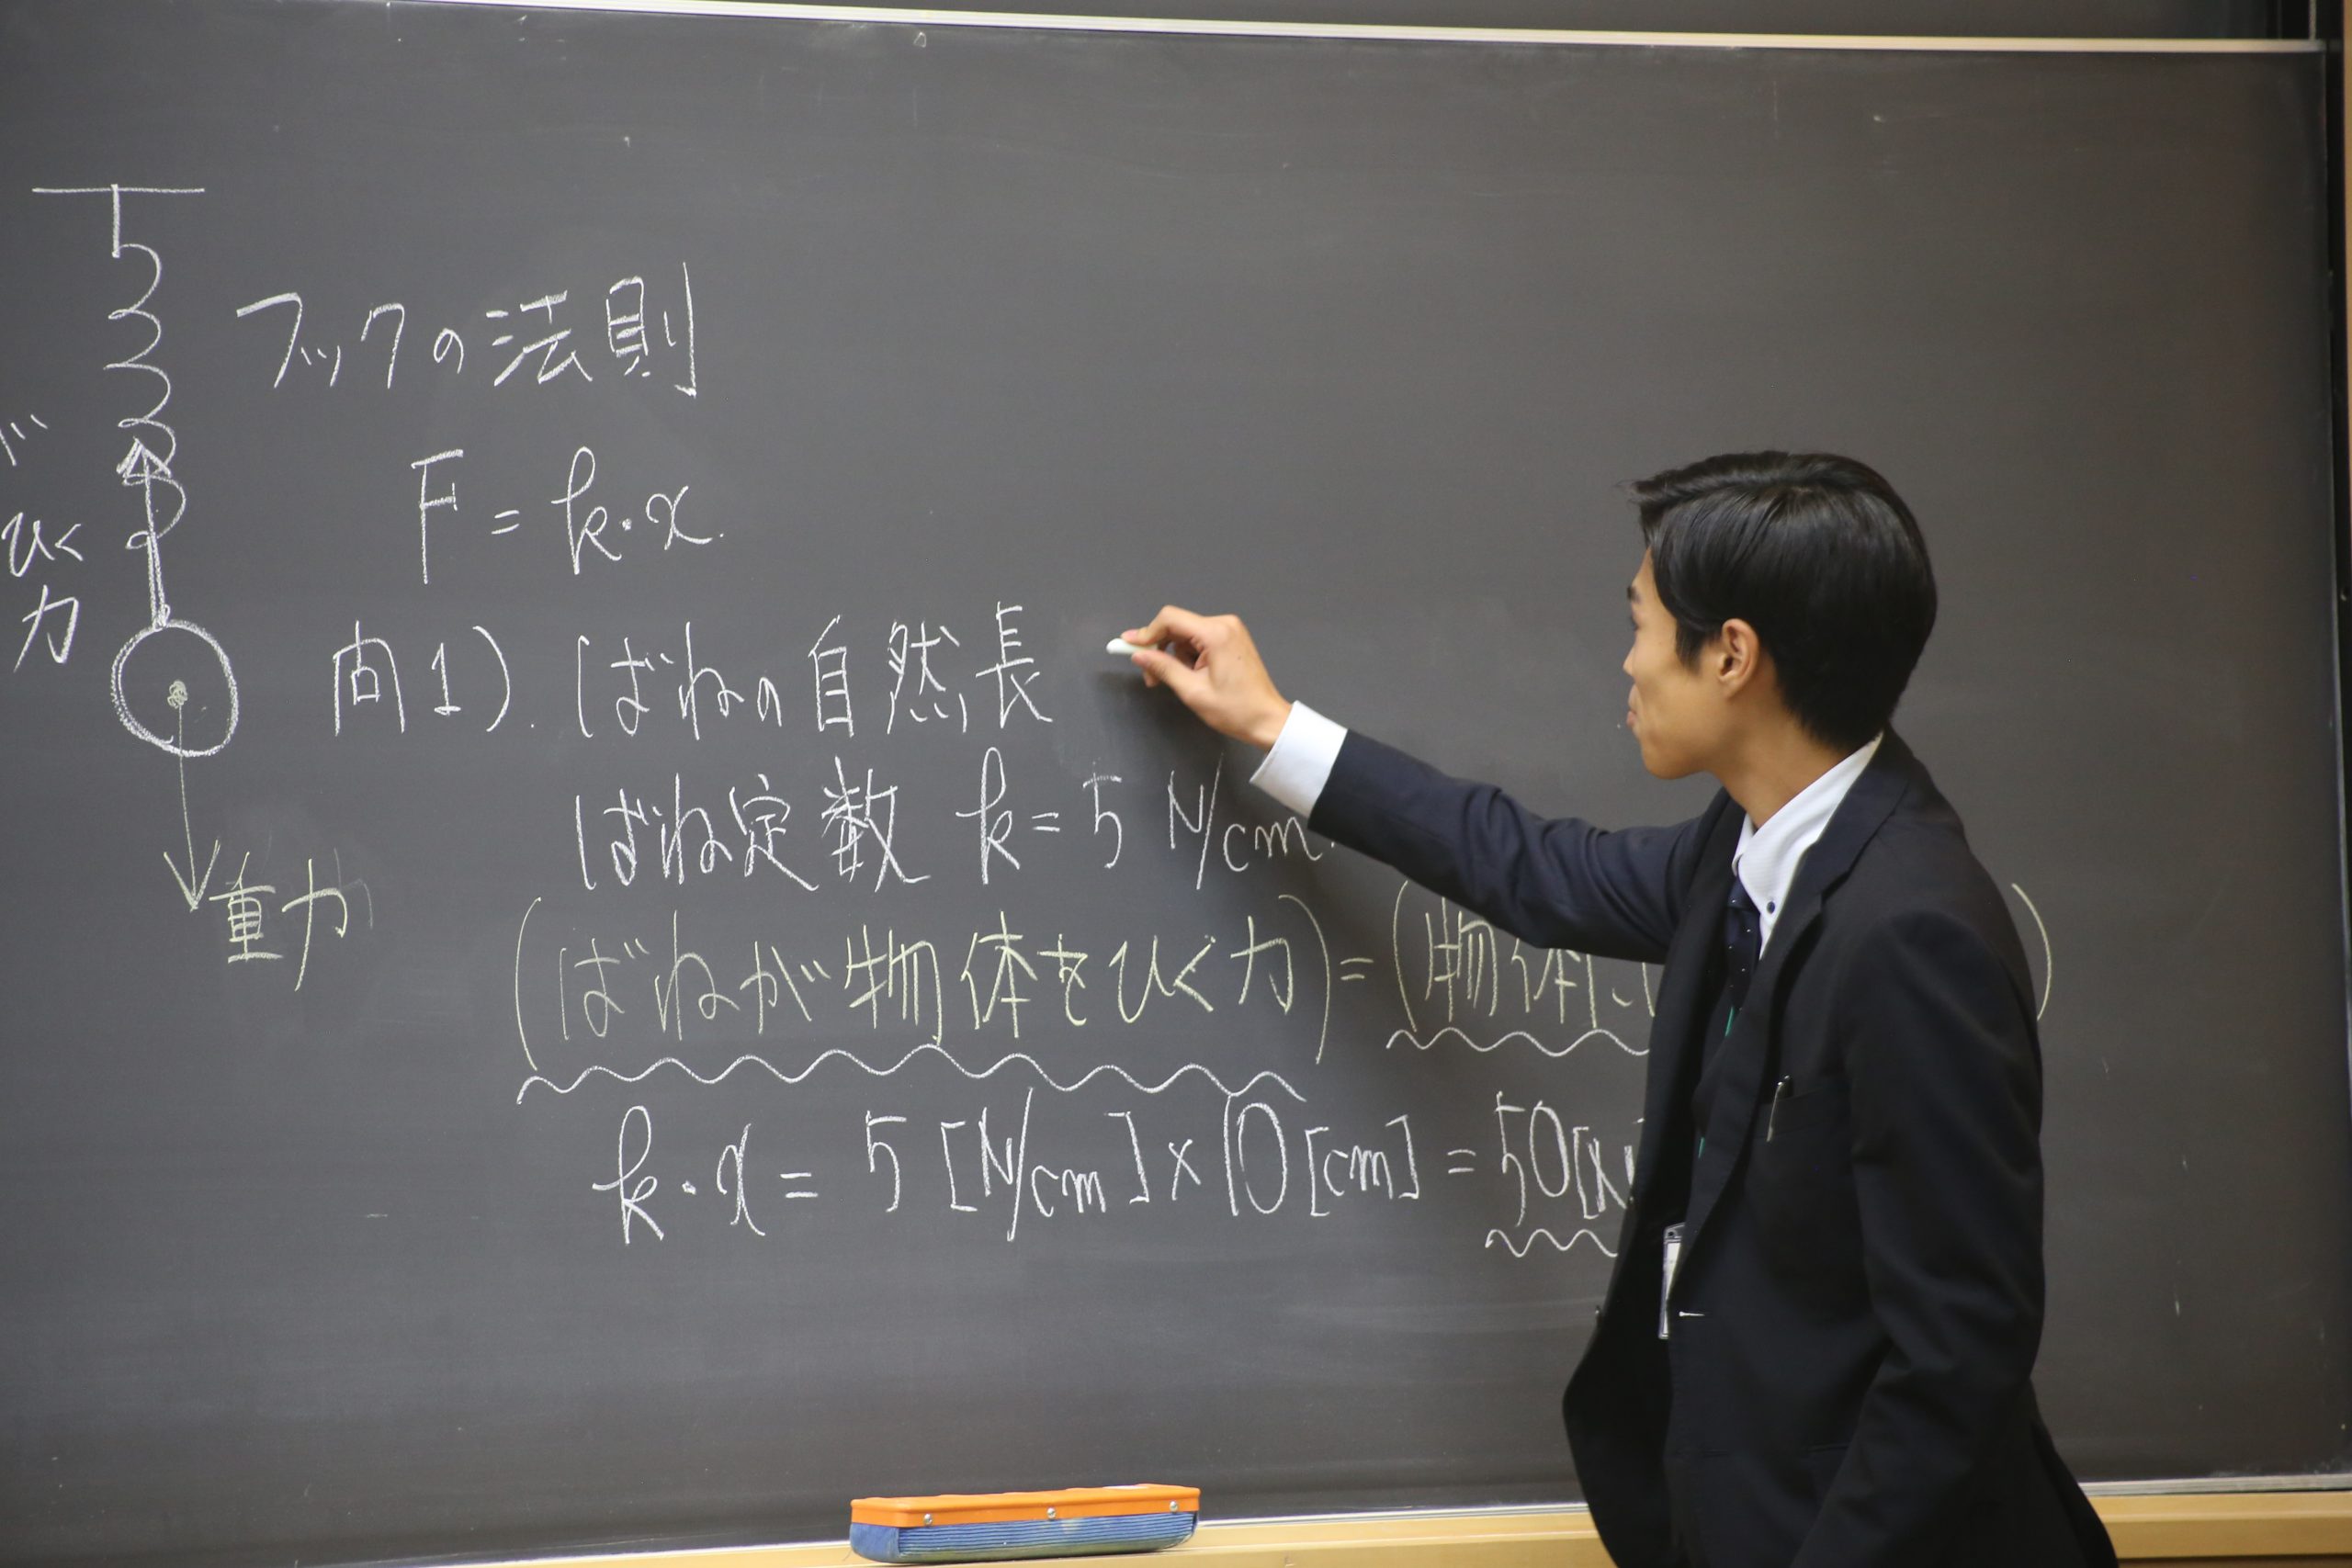 フックの法則
F = k・x
問1). ばねの自然長
ばね定数 k = 5 N/cm.
(ばねが物体をひく力) = (物体に
k・x = 5 [N/cm] × 10 [cm] = 50[N
が
ひく
力
重力